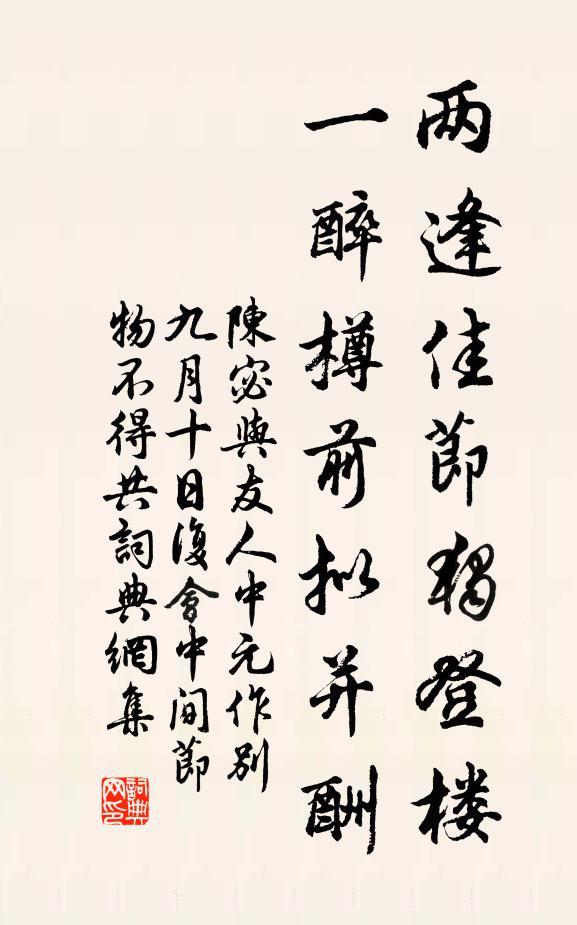 两逢佳節獨登楼
一醉樽前拟并酬
陳宓與友人中元作别
九月十日復會中间節
物不得共詞典網集
詞典网印